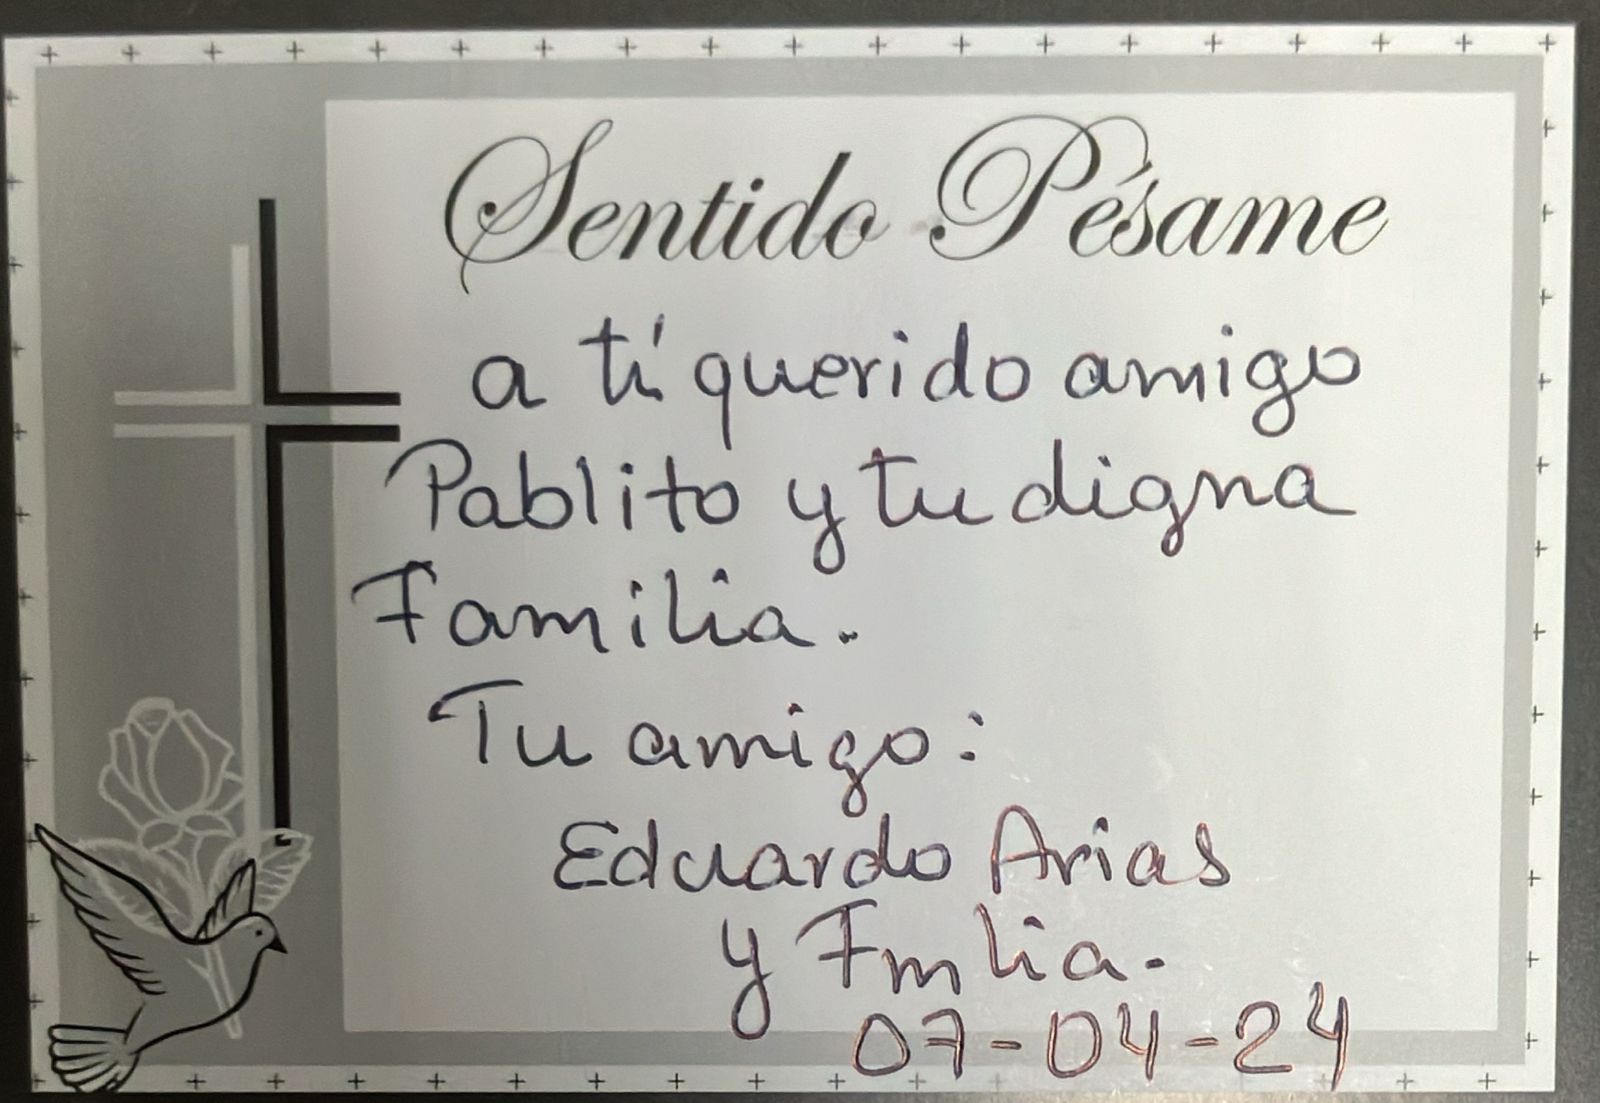 Sentido Pésame
a tí querido amigo
Pablito y tu digna
Familia.
Tu amigo:
Eduardo Arias
y Fmlia.
07-04-24